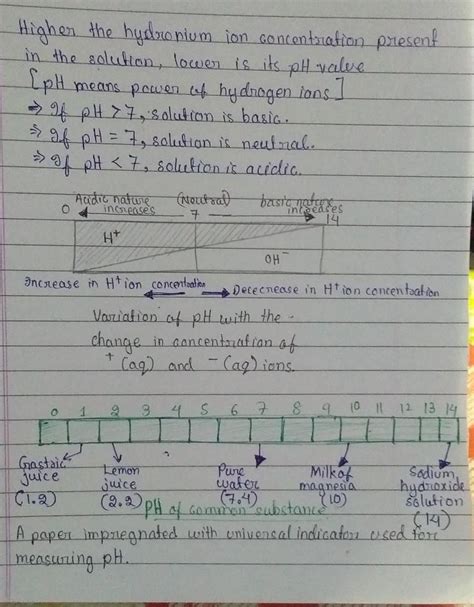 Higher the hydronium ion concentration present
in the solution, lower is its pH value
[pH means power of hydrogen ions]
⇒ If pH > 7, solution is basic.
⇒ If pH = 7, solution is neutral.
⇒ If pH < 7, solution is acidic.
Acidic nature (Neutral) basic nature
0 increases 7 increases 14
H⁺
OH⁻
Increase in H⁺ ion concentration Dececnease in H⁺ ion concentration
Variation of pH with the
change in concentration of
⁺(aq) and ⁻(aq) ions.
0 1 2 3 4 5 6 7 8 9 10 11 12 13 14
Gastric Lemon Pure Milk of Sodium
juice juice water magnesia hydroxide
(1.2) (2.2) (7.4) (10) solution
(14)
pH of common substance
A paper impregnated with universal indicator used for
measuring pH.